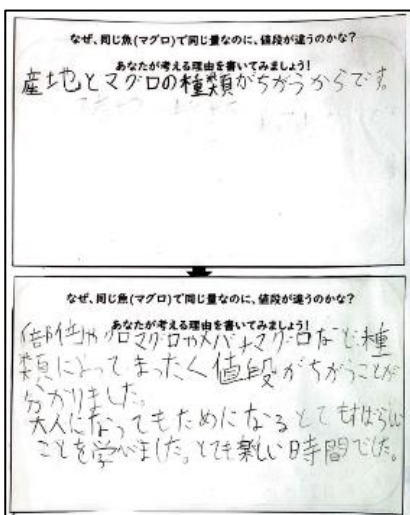 なぜ、同じ魚(マグロ)で同じ量なのに、値段が違うのかな?
あなたが考える理由を書いてみましょう!
産地とマグロの種類がちがうからです。
なぜ、同じ魚(マグロ)で同じ量なのに、値段が違うのかな?
あなたが考える理由を書いてみましょう!
部位やクロマグロやメバチマグロなど種
類によってまったく値段がちがうことが
分かりました。
大人になってもためになるとてもすばらしい
ことを学べました。とても楽しい時間でした。